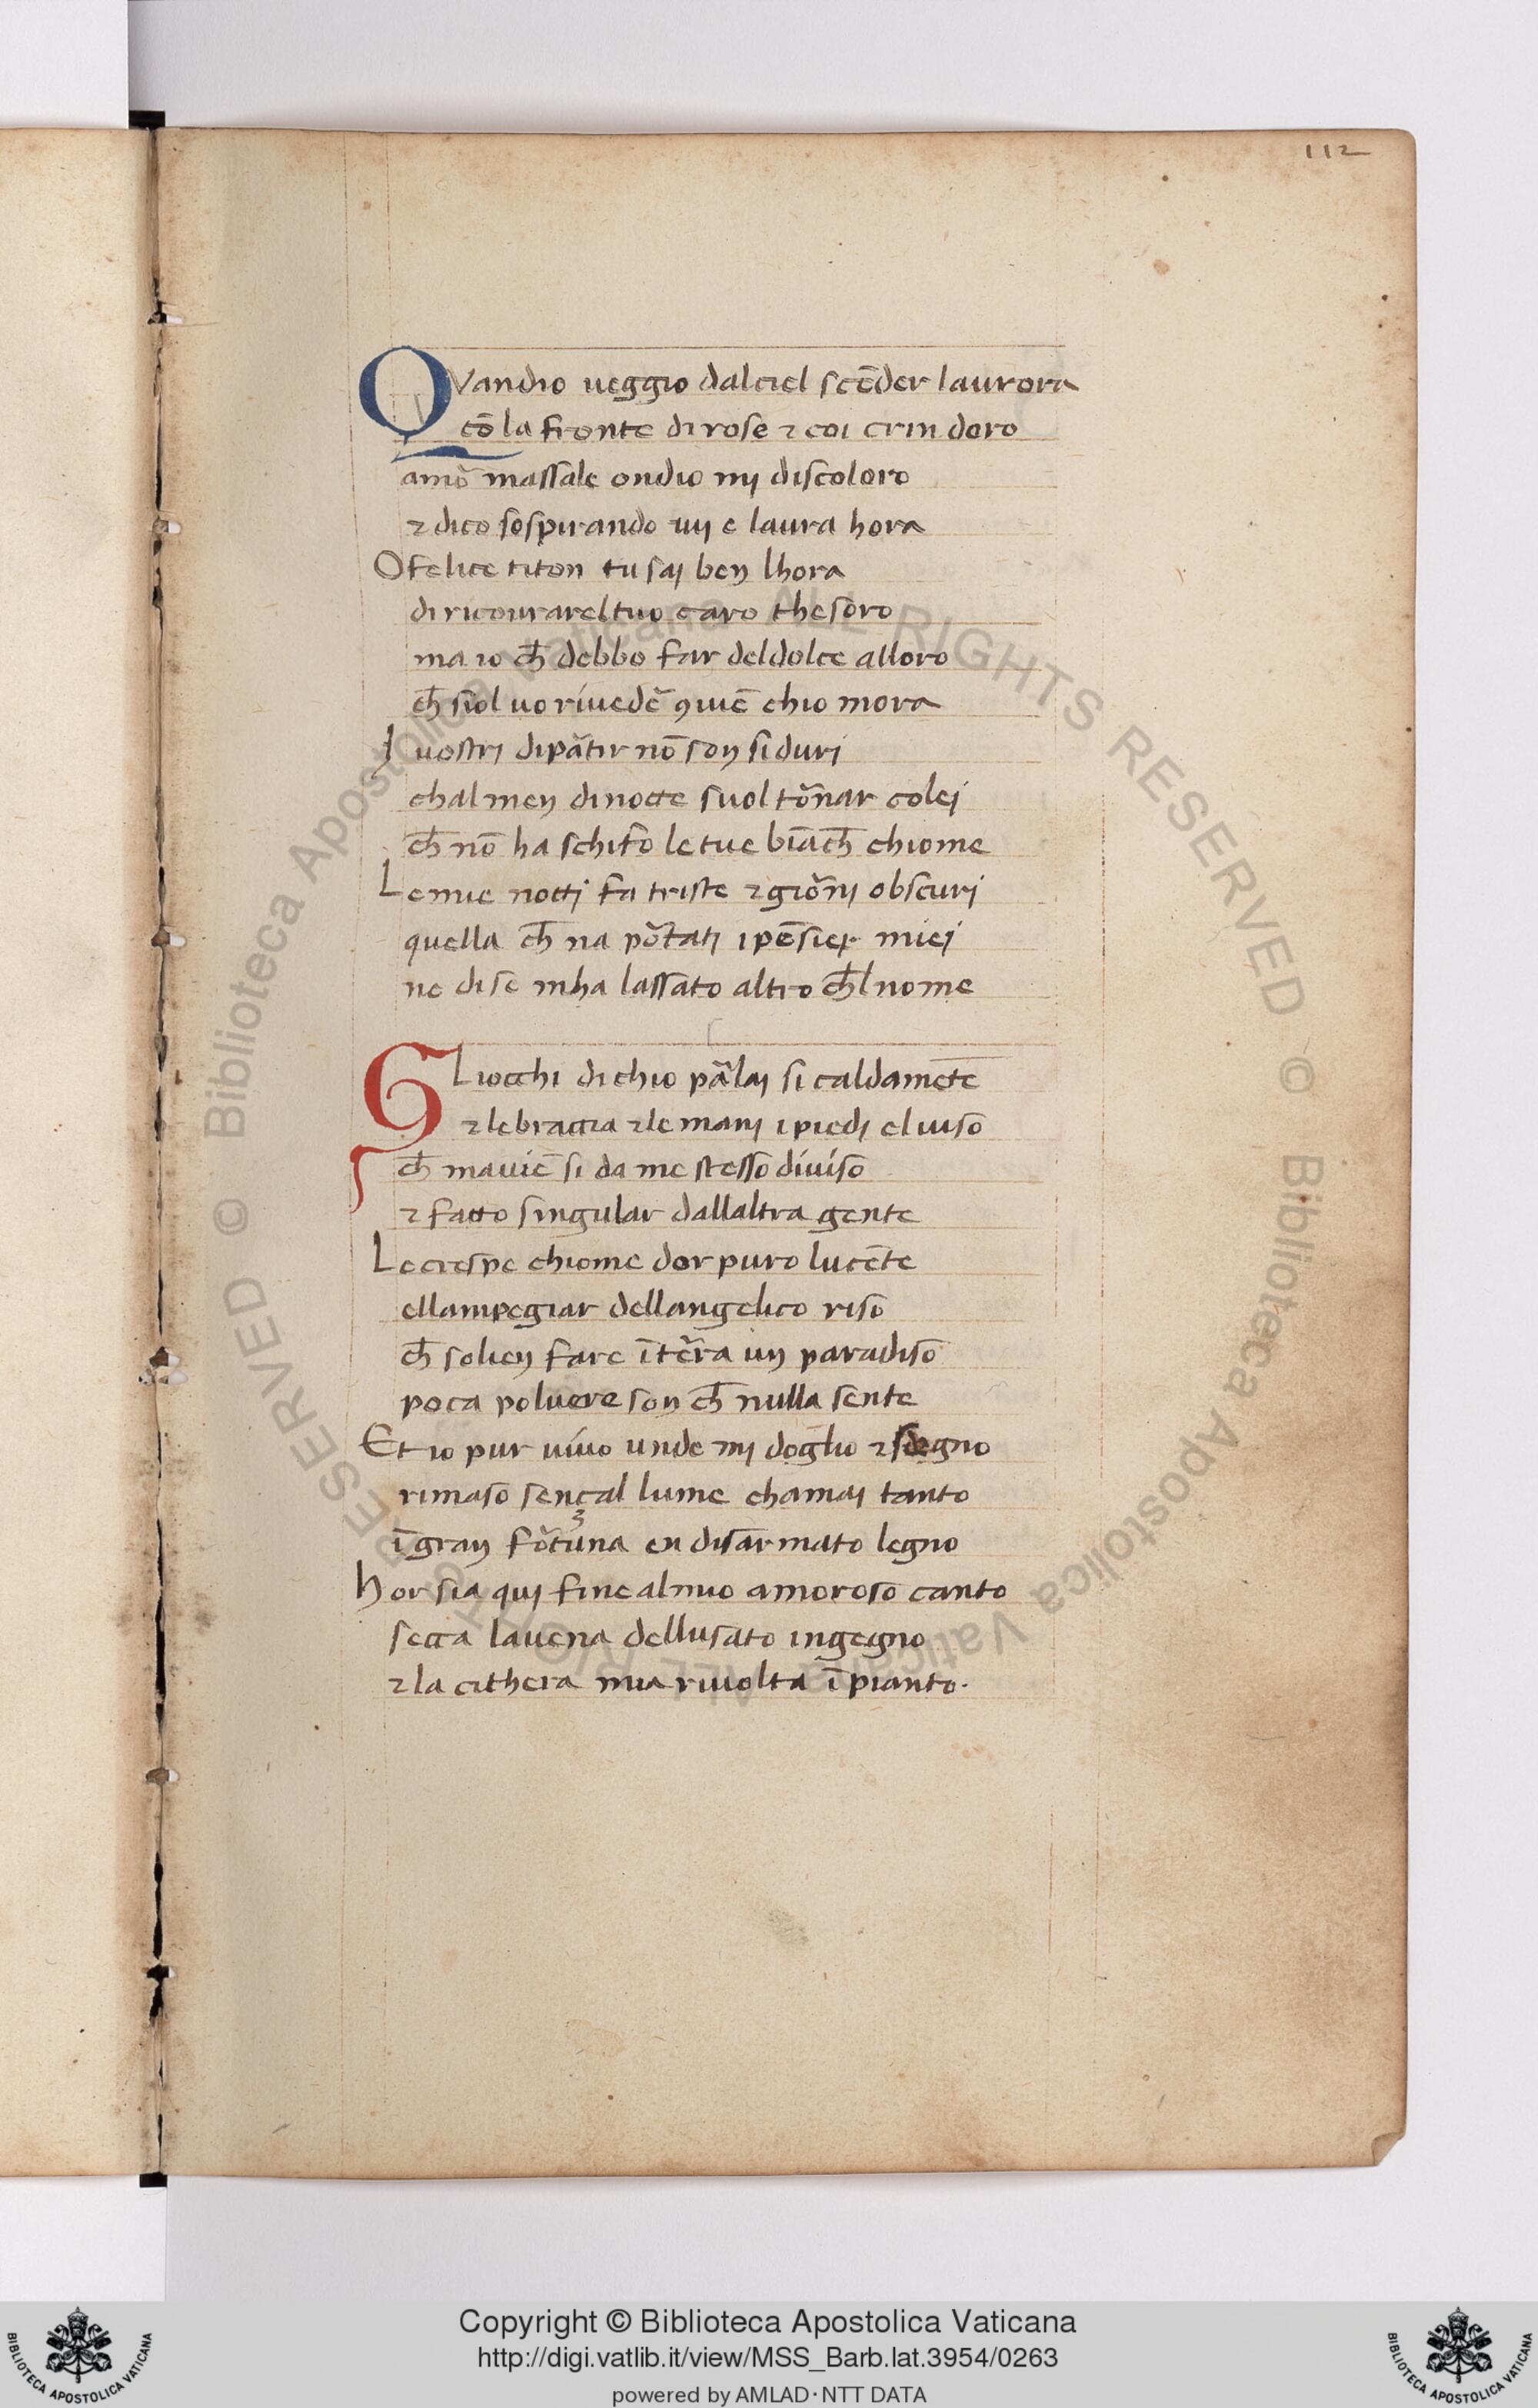 112
QVandio ueggio dalciel scēder laurora
cō la fronte di rose ⁊ coi crin doro
amō massale ondio mj discoloro
⁊ dico sospirando iuj e laura hora
O felice titon tu saj ben lhora
di ricourarel tuo caro thesoro
ma io ch̄ debbo far del dolce alloro
ch̄ siol uo riuedē ꝯuiē chio mora
I uostri dipātir nō son si duri
chalmen di nocte suol tōnar colej
ch̄ nō ha schifo le tue biāch̄ chiome
Le mie nottj fa triste ⁊ giōnj obscuri
quella ch̄ na pōtatj i pēsier miej
ne di se mha lassato altro ch̄l nome
Gliocchi di chio pālaj si caldamēte
⁊ le braccia ⁊ le manj i piedj el uiso
ch̄ mauiē si da me stesso diuiso
⁊ facto singular dallaltra gente
Le crespe chiome dor puro lucēte
ellampegiar dellangelico riso
ch̄ solien fare ī tēra un paradiso
poca poluere son ch̄ nulla sente
Et io pur uiuo unde mj doglio ⁊ sdegno
rimaso sençal lume chamaj tanto
ī gran fōtuna en disarmato legno
hor sia quj fine al mio amoroso canto
secca la uena dellusato ingegno
⁊ la cithera mia riuolta ī pianto.
© Biblioteca Apostolica Vaticana ALL RIGHTS RESERVED
© Biblioteca Apostolica Vaticana ALL RIGHTS RESERVED
Copyright © Biblioteca Apostolica Vaticana
http://digi.vatlib.it/view/MSS_Barb.lat.3954/0263
powered by AMLAD·NTT DATA
BIBLIOTECA APOSTOLICA VATICANA
BIBLIOTECA APOSTOLICA VATICANA